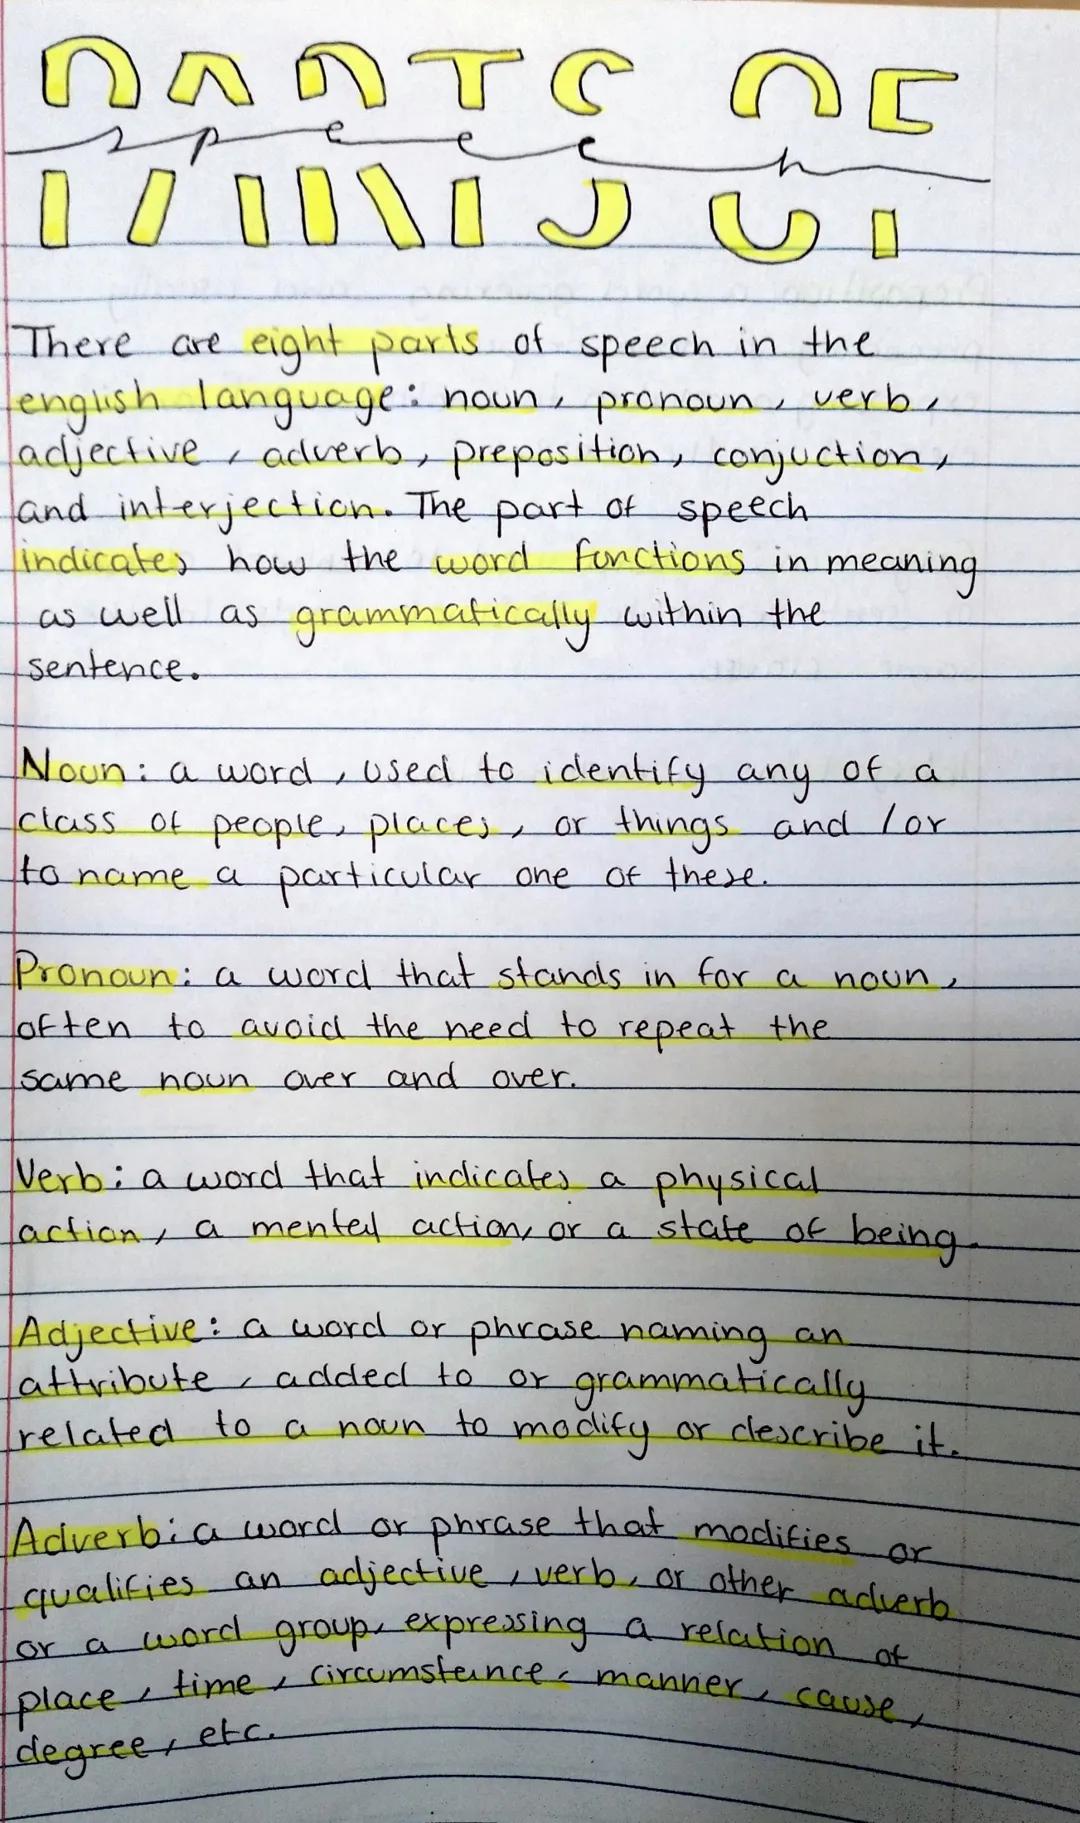 PARTS OF
speech
There are eight parts of speech in the
english language: noun, pronoun, verb,
adjective, adverb, preposition, conjuction,
and interjection. The part of speech
indicates how the word functions in meaning
as well as grammatically within the
sentence.
Noun: a word, used to identify any of a
class of people, places, or things and /or
to name a particular one of these.
Pronoun: a word that stands in for a noun,
often to avoid the need to repeat the
same noun over and over.
Verb: a word that indicates a physical
action, a mental action, or a state of being.
Adjective: a word or phrase naming an
attribute, added to or grammatically
related to a noun to modify or describe it.
Adverb: a word or phrase that modifies or
qualifies an adjective, verb, or other adverb
or a word group, expressing a relation of
place, time, circumstance, manner, cause,
degree, etc.